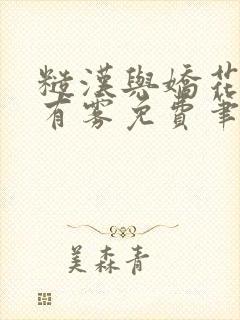 糙漢與嬌花
有霧免費筆
美森青